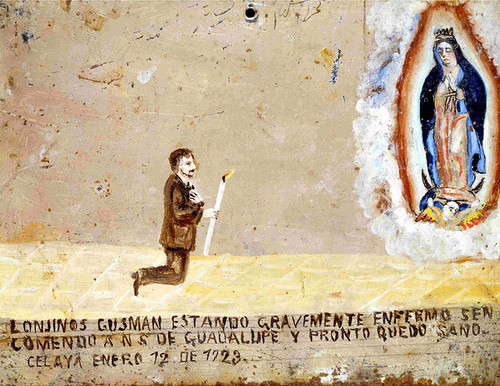 LONJINOS GUSMAN ESTANDO GRAVEMENTE ENFERMO SEN
COMENDO A N S DE GUADALUPE Y PRONTO QUEDO SANO.
CELAYA ENERO 12 DE 1923.